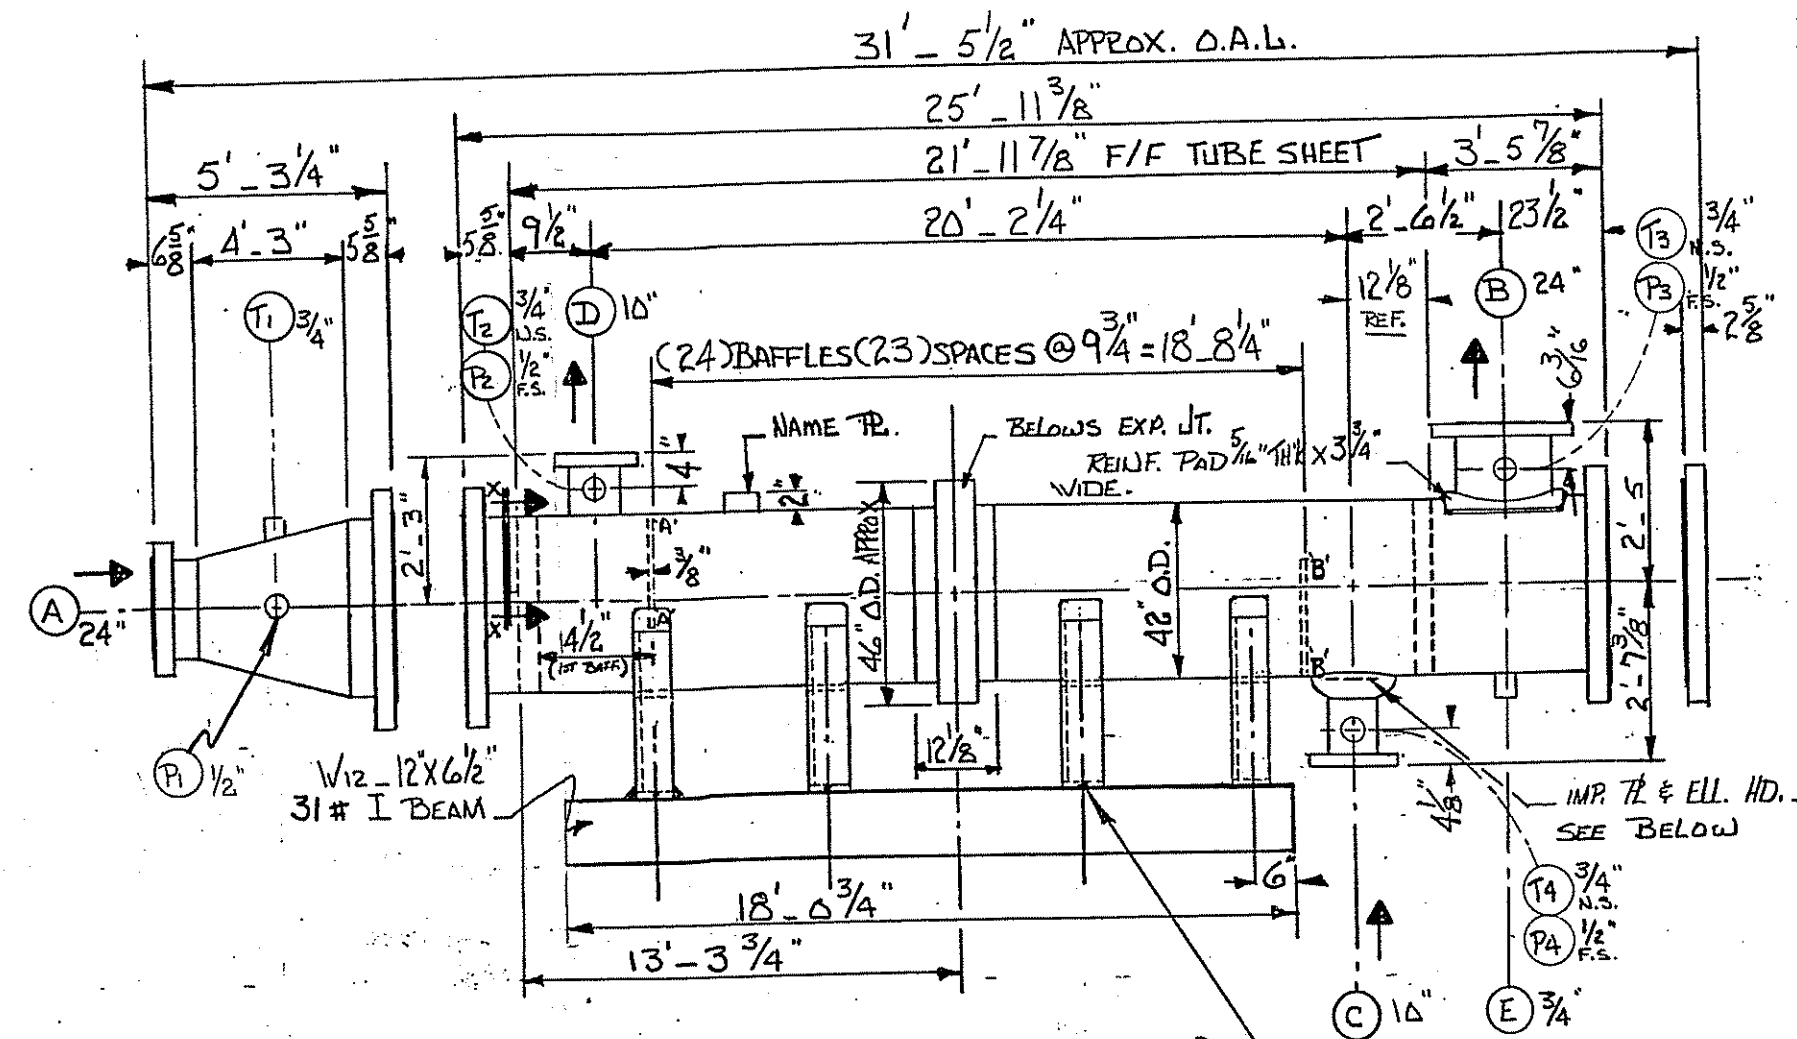 31' - 5 1/2" APPROX. O.A.L.
25' - 11 3/8"
5' - 3 1/4"
21' - 11 7/8" F/F TUBE SHEET
3' - 5 7/8"
6 5/8"
4' - 3"
5 5/8"
5 5/8"
9 1/2"
20' - 2 1/4"
2' - 6 1/2"
23 1/2"
T3 3/4" N.S.
P3 1/2" F.S.
2 5/8"
T1 3/4"
T2 3/4" N.S.
P2 1/2" F.S.
D 10"
12 1/8" REF.
B 24"
6 3/16"
(24) BAFFLES (23) SPACES @ 9 3/4" = 18' - 8 1/4"
NAME PL.
BELOWS EXP. JT.
REINF. PAD 5/16" TH'K X 3 3/4"
WIDE.
4"
2"
2' - 3"
X
X
A'
A'
3/8"
46" O.D. APPROX
42" O.D.
B'
B'
2' - 5
2' - 7 3/8"
A
24"
14 1/2"
(1ST BAFF.)
P1 1/2"
W12 - 12" X 6 1/2"
31 # I BEAM
12 1/8"
4 1/8"
IMP. PL & ELL. HD.
SEE BELOW
6"
18' - 0 3/4"
13' - 3 3/4"
T4 3/4" N.S.
P4 1/2" F.S.
C 10"
E 3/4"